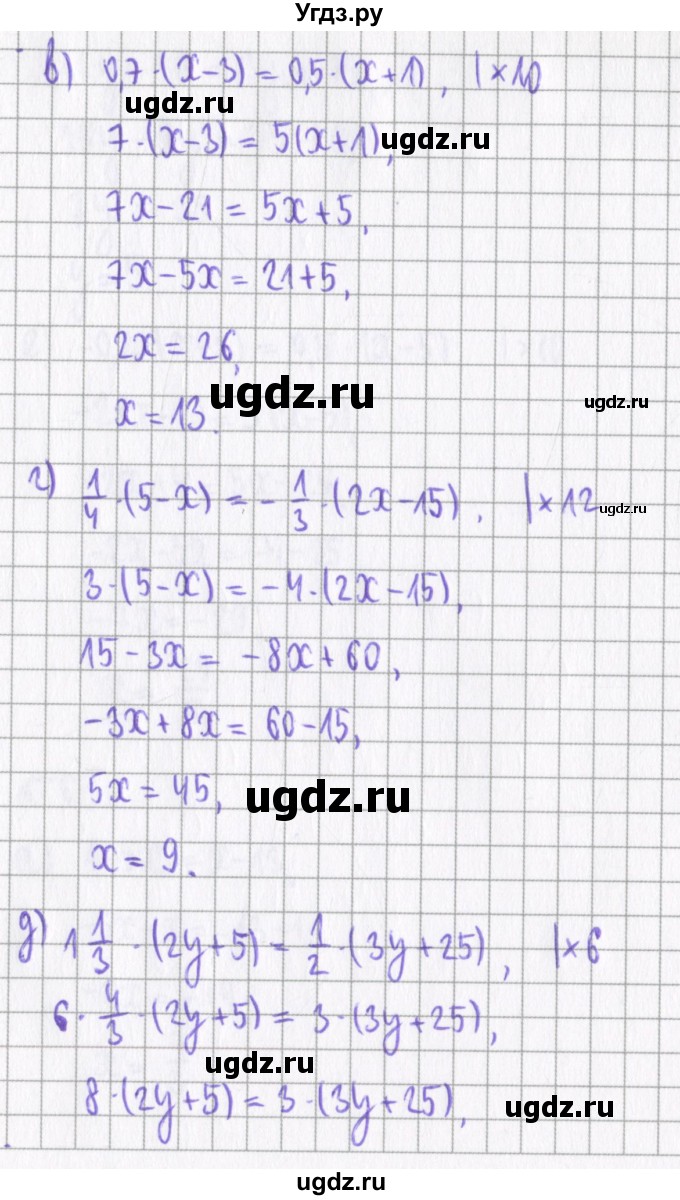 Угдз.ру
в) 0,7·(x-3) = 0,5·(x+1), |×10
ugdz.ru
7·(x-3) = 5(x+1), ugdz.ru
7x-21 = 5x+5,
7x-5x = 21+5,
2x = 26,
ugdz.ru
x = 13. ugdz.ru
г) 1/4·(5-x) = -1/3·(2x-15), |×12
ugdz.ru
3·(5-x) = -4·(2x-15),
15-3x = -8x+60,
-3x+8x = 60-15,
5x = 45, ugdz.ru
x = 9.
д) 1 1/3·(2y+5) = 1/2·(3y+25), |×6
6·4/3·(2y+5) = 3·(3y+25),
ugdz.ru
8·(2y+5) = 3·(3y+25),
ugdz.ru
ugdz.ru